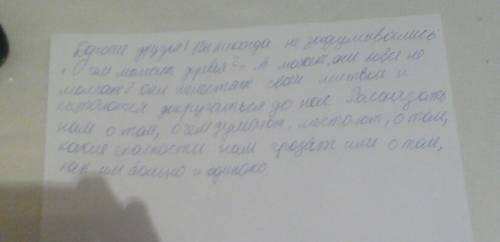 Дорогие друзья! Вы никогда не задумывались
" О чём молчат деревья?" А может, они вовсе не
молчат? Они шелестят своей листвой и
пытаются докричаться до нас. Рассказать
нам о том, о чём думают, мечтают, о том,
какие опасности нам грозят или о том,
как им больно и одиноко.